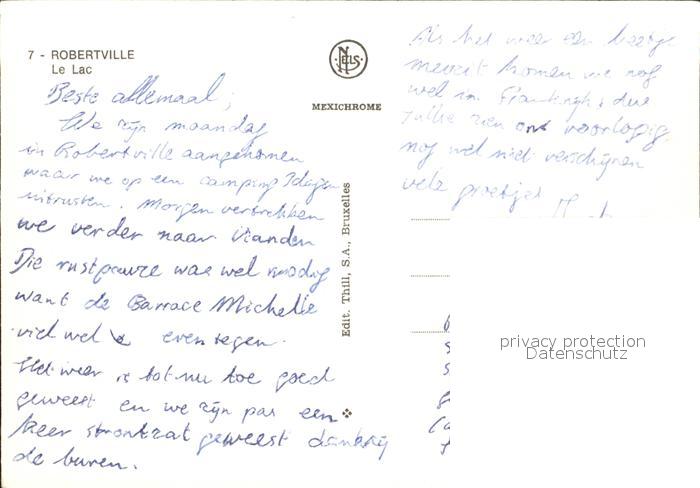 7 - ROBERTVILLE
Le Lac
NELS
MEXICHROME
Edit. Thill, S.A., Bruxelles
Beste allemaal,
We zijn maandag
in Robertville aangekomen
waar we op een camping 3 dagen
uitrusten. Morgen vertrekken
we verder naar Vianden
Die rustpauze was wel nodig
want de Barrace Michelle
viel wel even tegen.
Het weer is tot nu toe goed
geweest en we zijn pas een
keer strontzat geweest dankzij
de buren.
Als het weer een beetje
meezit komen we nog
wel in Frankrijk, dus
jullie zien ons voorlopig
nog wel niet verschijnen
vele groetjes
privacy protection
Datenschutz